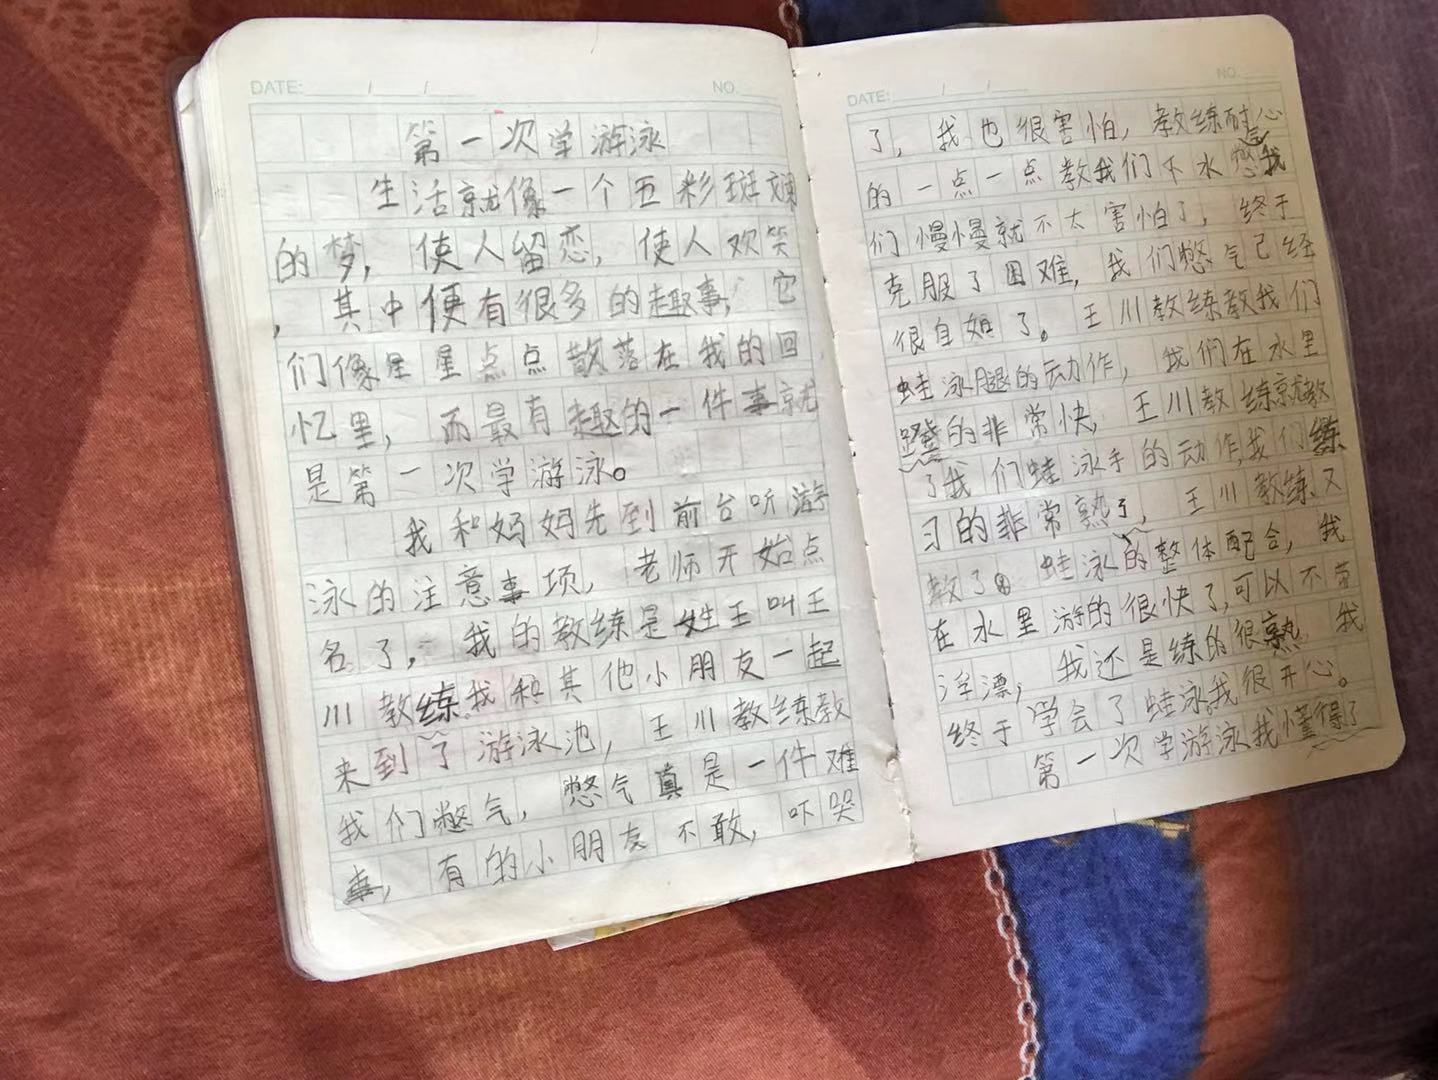 DATE: / /
NO.
第一次学游泳
生活就像一个五彩斑斓
的梦，使人留恋，使人欢笑
，其中便有很多的趣事，它
们像星星点点散落在我的回
忆里，而最有趣的一件事就
是第一次学游泳。
我和妈妈先到前台听游
泳的注意事项，老师开始点
名了，我的教练是姓王叫王
川教练我和其他小朋友一起
来到了游泳池，王川教练教
我们憋气，憋气真是一件难
事，有的小朋友不敢，吓哭
DATE: / /
NO.
了，我也很害怕，教练耐心
的一点一点教我们下水憋气我
们慢慢就不太害怕了，终于
克服了困难，我们憋气已经
很自如了。王川教练教我们
蛙泳腿的动作，我们在水里
蹬的非常快，王川教练就教
了我们蛙泳手的动作，我们练
习的非常熟了，王川教练又
教了 蛙泳的整体配合，我
在水里游的很快了，可以不带
浮漂，我还是练的很熟，我
终于学会了蛙泳，我很开心。
第一次学游泳我懂得了